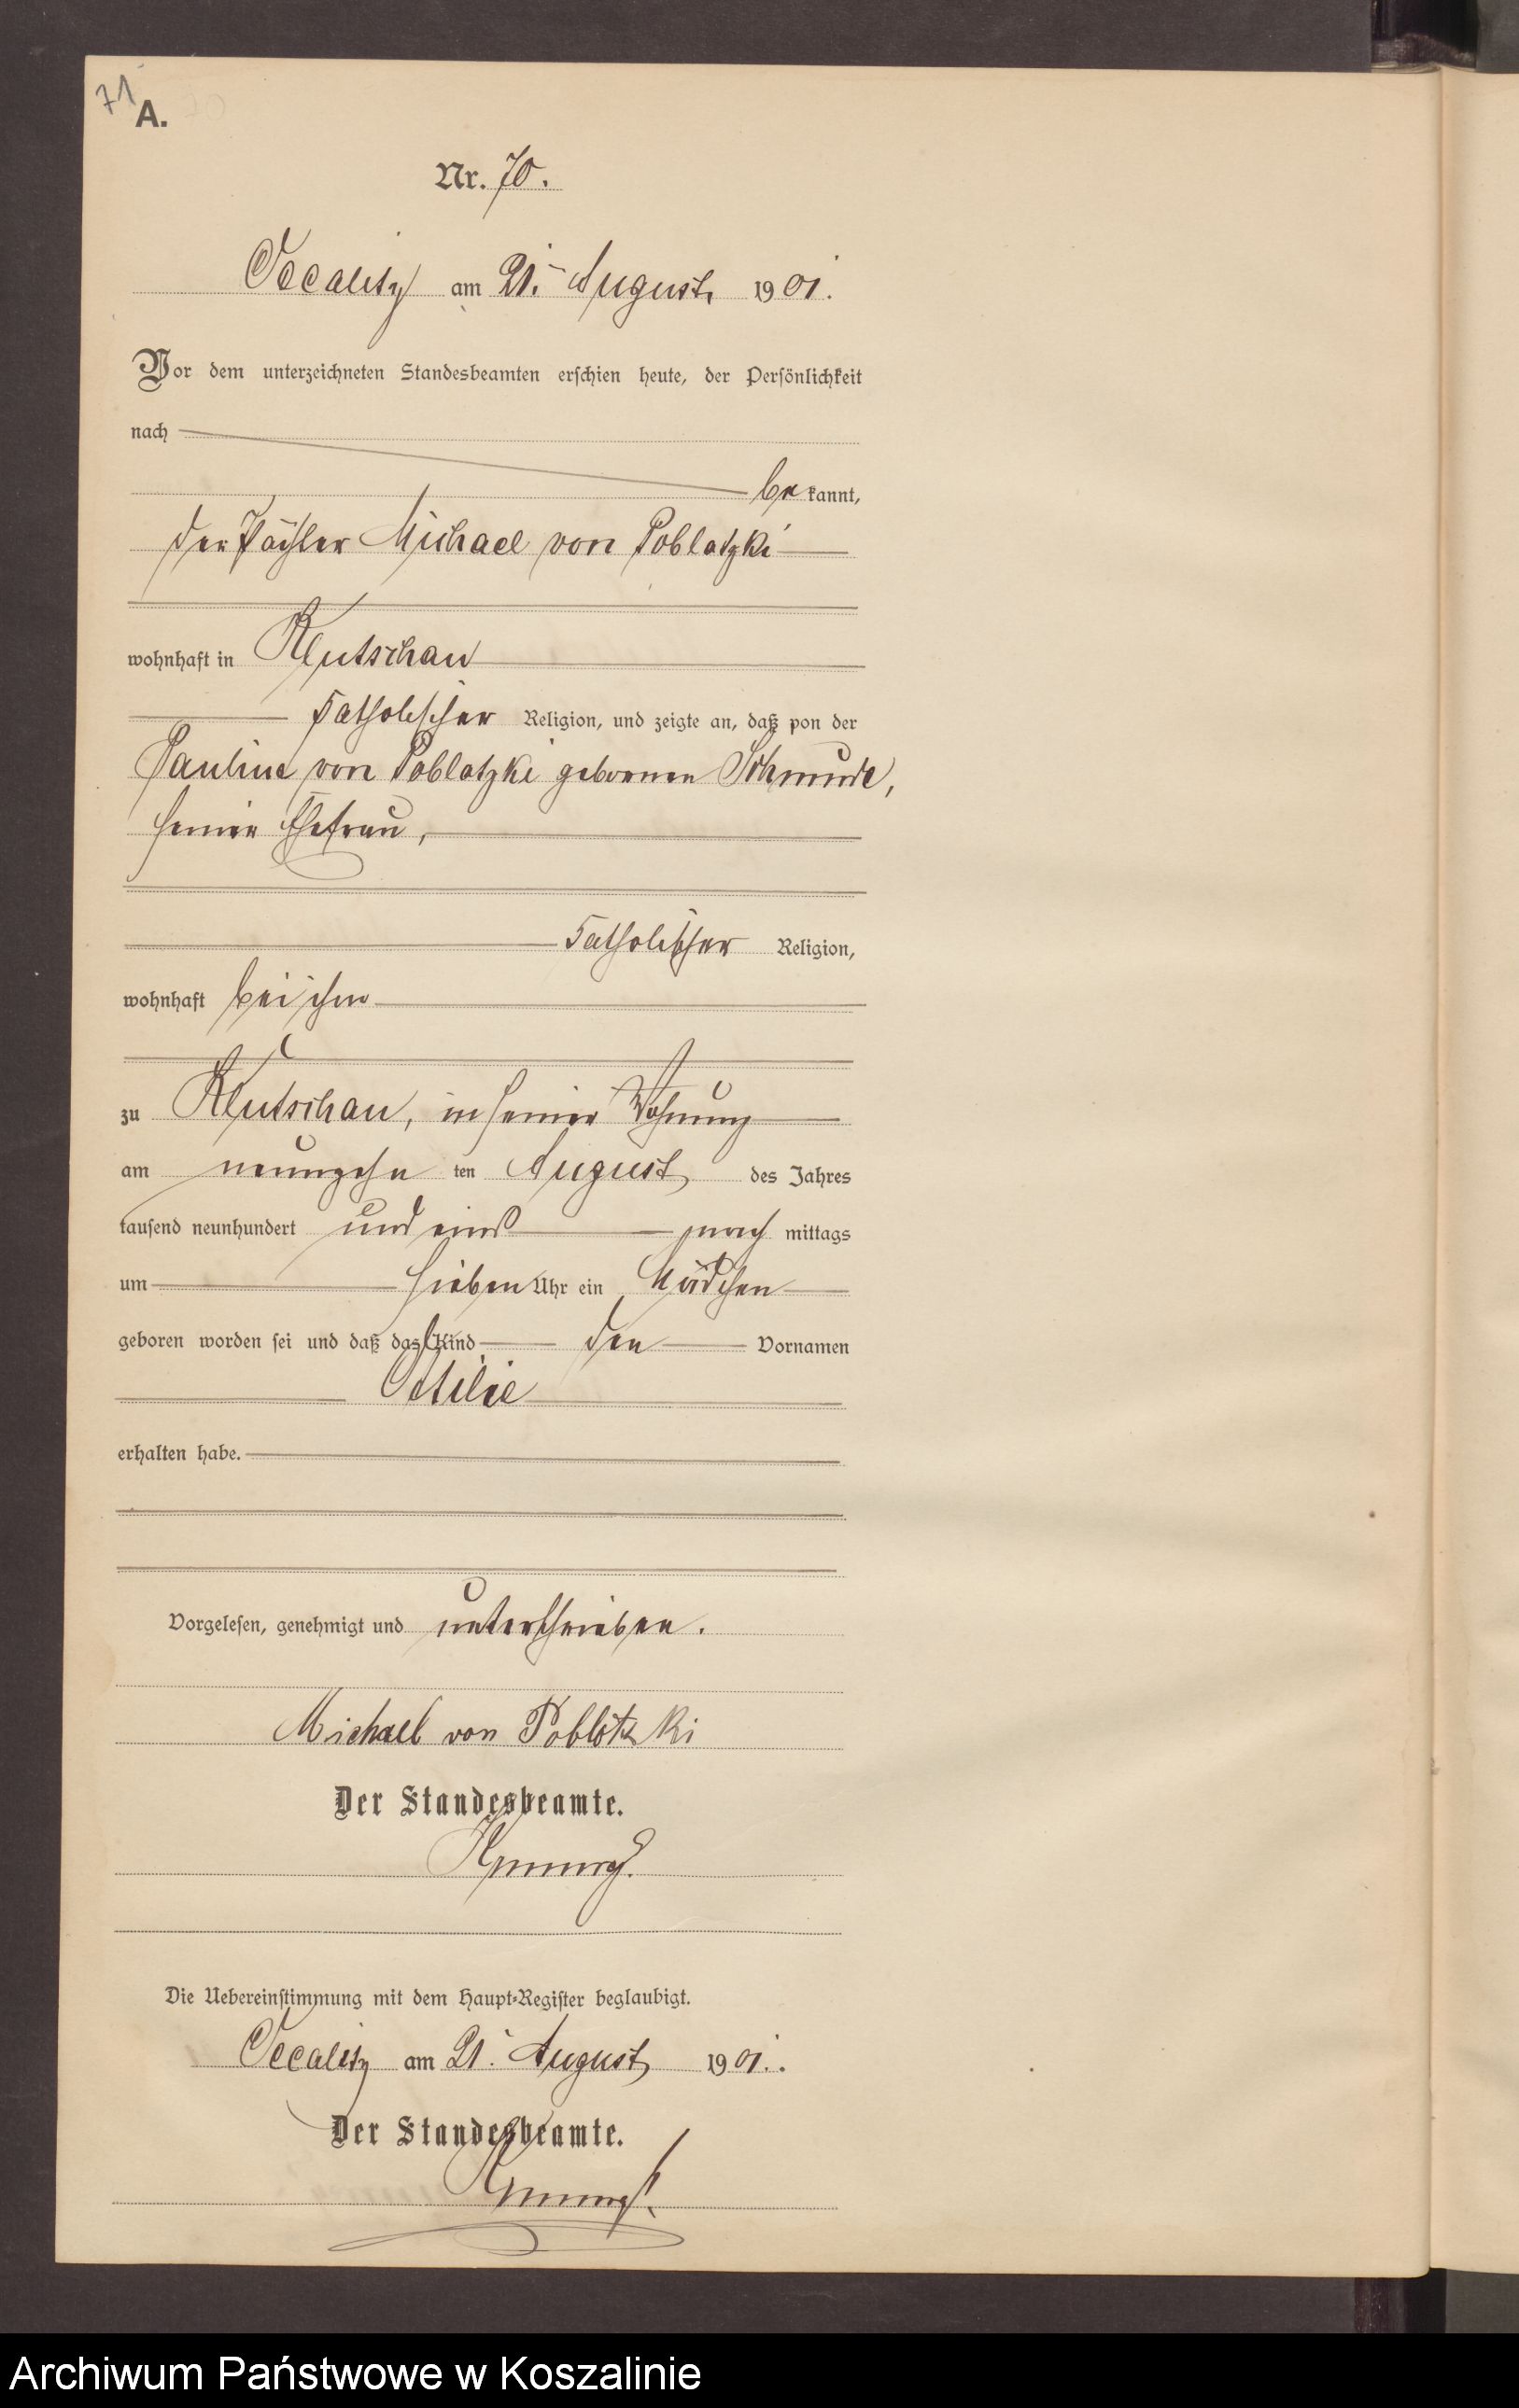 71
A.
Nr. 70.
Occalitz am 21. August 1901.
Vor dem unterzeichneten Standesbeamten erschien heute, der Persönlichkeit
nach
be kannt,
der Pächter Michael von Poblotzki
wohnhaft in Klutschau
katholischer Religion, und zeigte an, daß von der
Pauline von Poblotzki geborenen Schmude,
seiner Ehefrau,
katholischer Religion,
wohnhaft bei ihm
zu Klutschau, in seiner Wohnung
am neunzehn ten August des Jahres
tausend neunhundert und eins nach mittags
um sieben Uhr ein Mädchen
geboren worden sei und daß das Kind den Vornamen
Ottilie
erhalten habe.
Vorgelesen, genehmigt und unterschrieben.
Michael von Poblotzki
Der Standesbeamte.
Die Uebereinstimmung mit dem Haupt-Register beglaubigt.
Occalitz am 21. August 1901.
Der Standesbeamte.
Archiwum Państwowe w Koszalinie